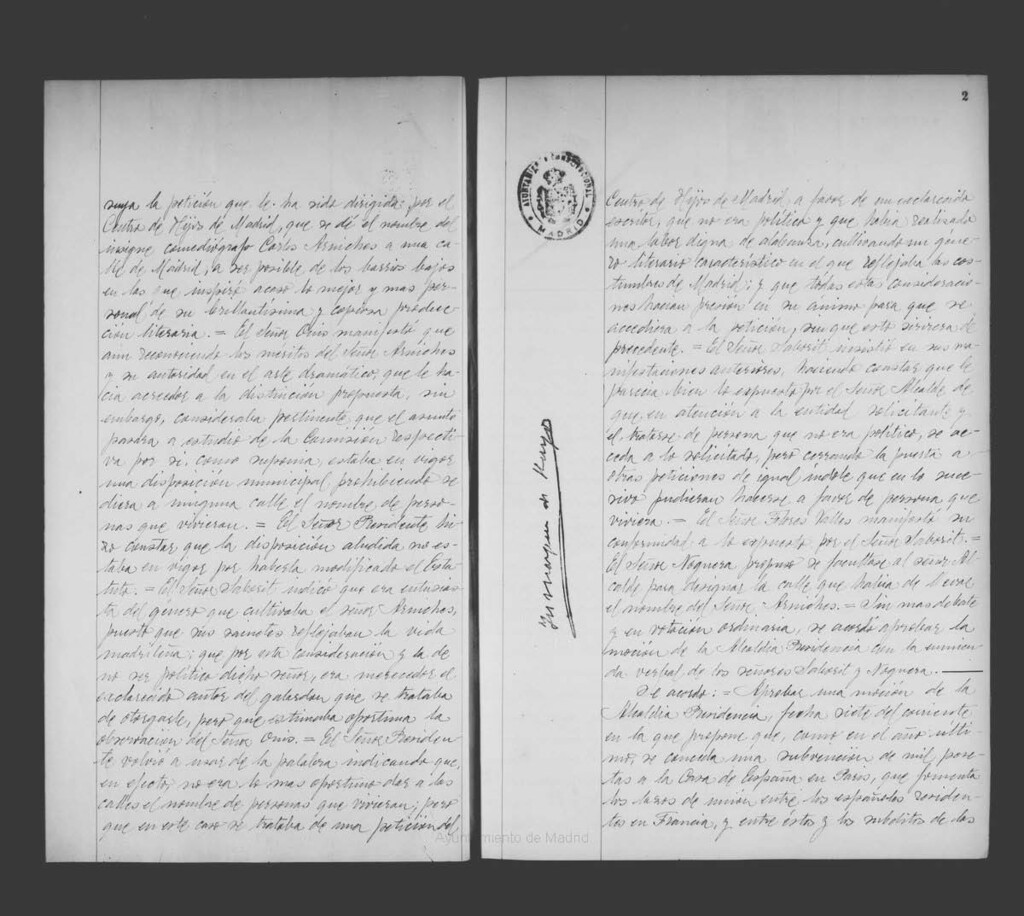 suya la petición que le ha sido dirigida por el
Centro de Hijos de Madrid, que se dé el nombre del
insigne comediógrafo Carlos Arniches a una ca-
lle de Madrid, a ser posible, de los barrios bajos
en los que inspiró acaso lo mejor y mas per-
sonal de su brillantísima y copiosa produc-
ción literaria. = El Señor Onis manifestó que
aun reconociendo los meritos del Señor Arniches
y su autoridad en el arte dramático, que le ha-
cia acreedor a la distinción propuesta, sin
embargo, consideraba pertinente que el asunto
pasara a estudio de la Comisión respecti-
va por si, como suponia, estaba en vigor
una disposición municipal prohibiendo se
diera a ninguna calle el nombre de perso-
nas que vivieran. = El Señor Presidente hi-
zo constar que la disposición aludida no es-
taba en vigor por haberla modificado el Esta-
tuto. = El Señor Saborit indicó que era entusias-
ta del género que cultivaba el señor Arniches,
puesto que sus sainetes reflejaban la vida
madrileña; que por esta consideración y la de
no ser político dicho señor, era merecedor el
esclarecido autor del galardon que se trataba
de otorgarle, pero que estimaba oportuna la
observación del Señor Onis. = El Señor Presiden-
te volvió a usar de la palabra indicando que,
en efecto, no era lo mas oportuno dar a las
calles el nombre de personas que vivieran; pero
que en este caso se trataba de una petición del
2
AYUNTAMIENTO CONSTITUCIONAL
MADRID
Centro de Hijos de Madrid a favor de un esclarecido
escritor, que no era político y que habia realizado
una labor digna de alabanza, cultivando un géne-
ro literario característico en el que reflejaba las cos-
tumbres de Madrid; y que todas estas consideracio-
nes hacian presión en su ánimo para que se
accediera a la petición, sin que esto sirviera de
precedente. = El Señor Saborit insistió en sus ma-
nifestaciones anteriores, haciendo constar que le
parecia bien lo expuesto por el Señor Alcalde de
que, en atención a la entidad solicitante y
el tratarse de persona que no era político, se ac-
ceda a lo solicitado, pero cerrando la puerta a
otras peticiones de igual índole que en lo suce-
sivo pudieran hacerse a favor de persona que
viviera. = El Señor Flores Valles manifestó su
conformidad a lo expuesto por el Señor Saborit. =
El Señor Noguera propuso se facultase al señor Al-
calde para designar la calle que habia de llevar
el nombre del Señor Arniches. = Sin mas debate
y en votación ordinaria, se acordó aprobar la
moción de la Alcaldia Presidencia con la enmien-
da verbal de los señores Saborit y Noguera.
Se acordó: = Aprobar una moción de la
Alcaldia Presidencia, fecha siete del corriente
en la que propone que, como en el año ulti-
mo, se conceda una subvención de mil pese-
tas a la Casa de España en Paris, que fomenta
los lazos de unión entre los españoles residen-
tes en Francia, y entre éstos y los subditos de las
Ayuntamiento de Madrid